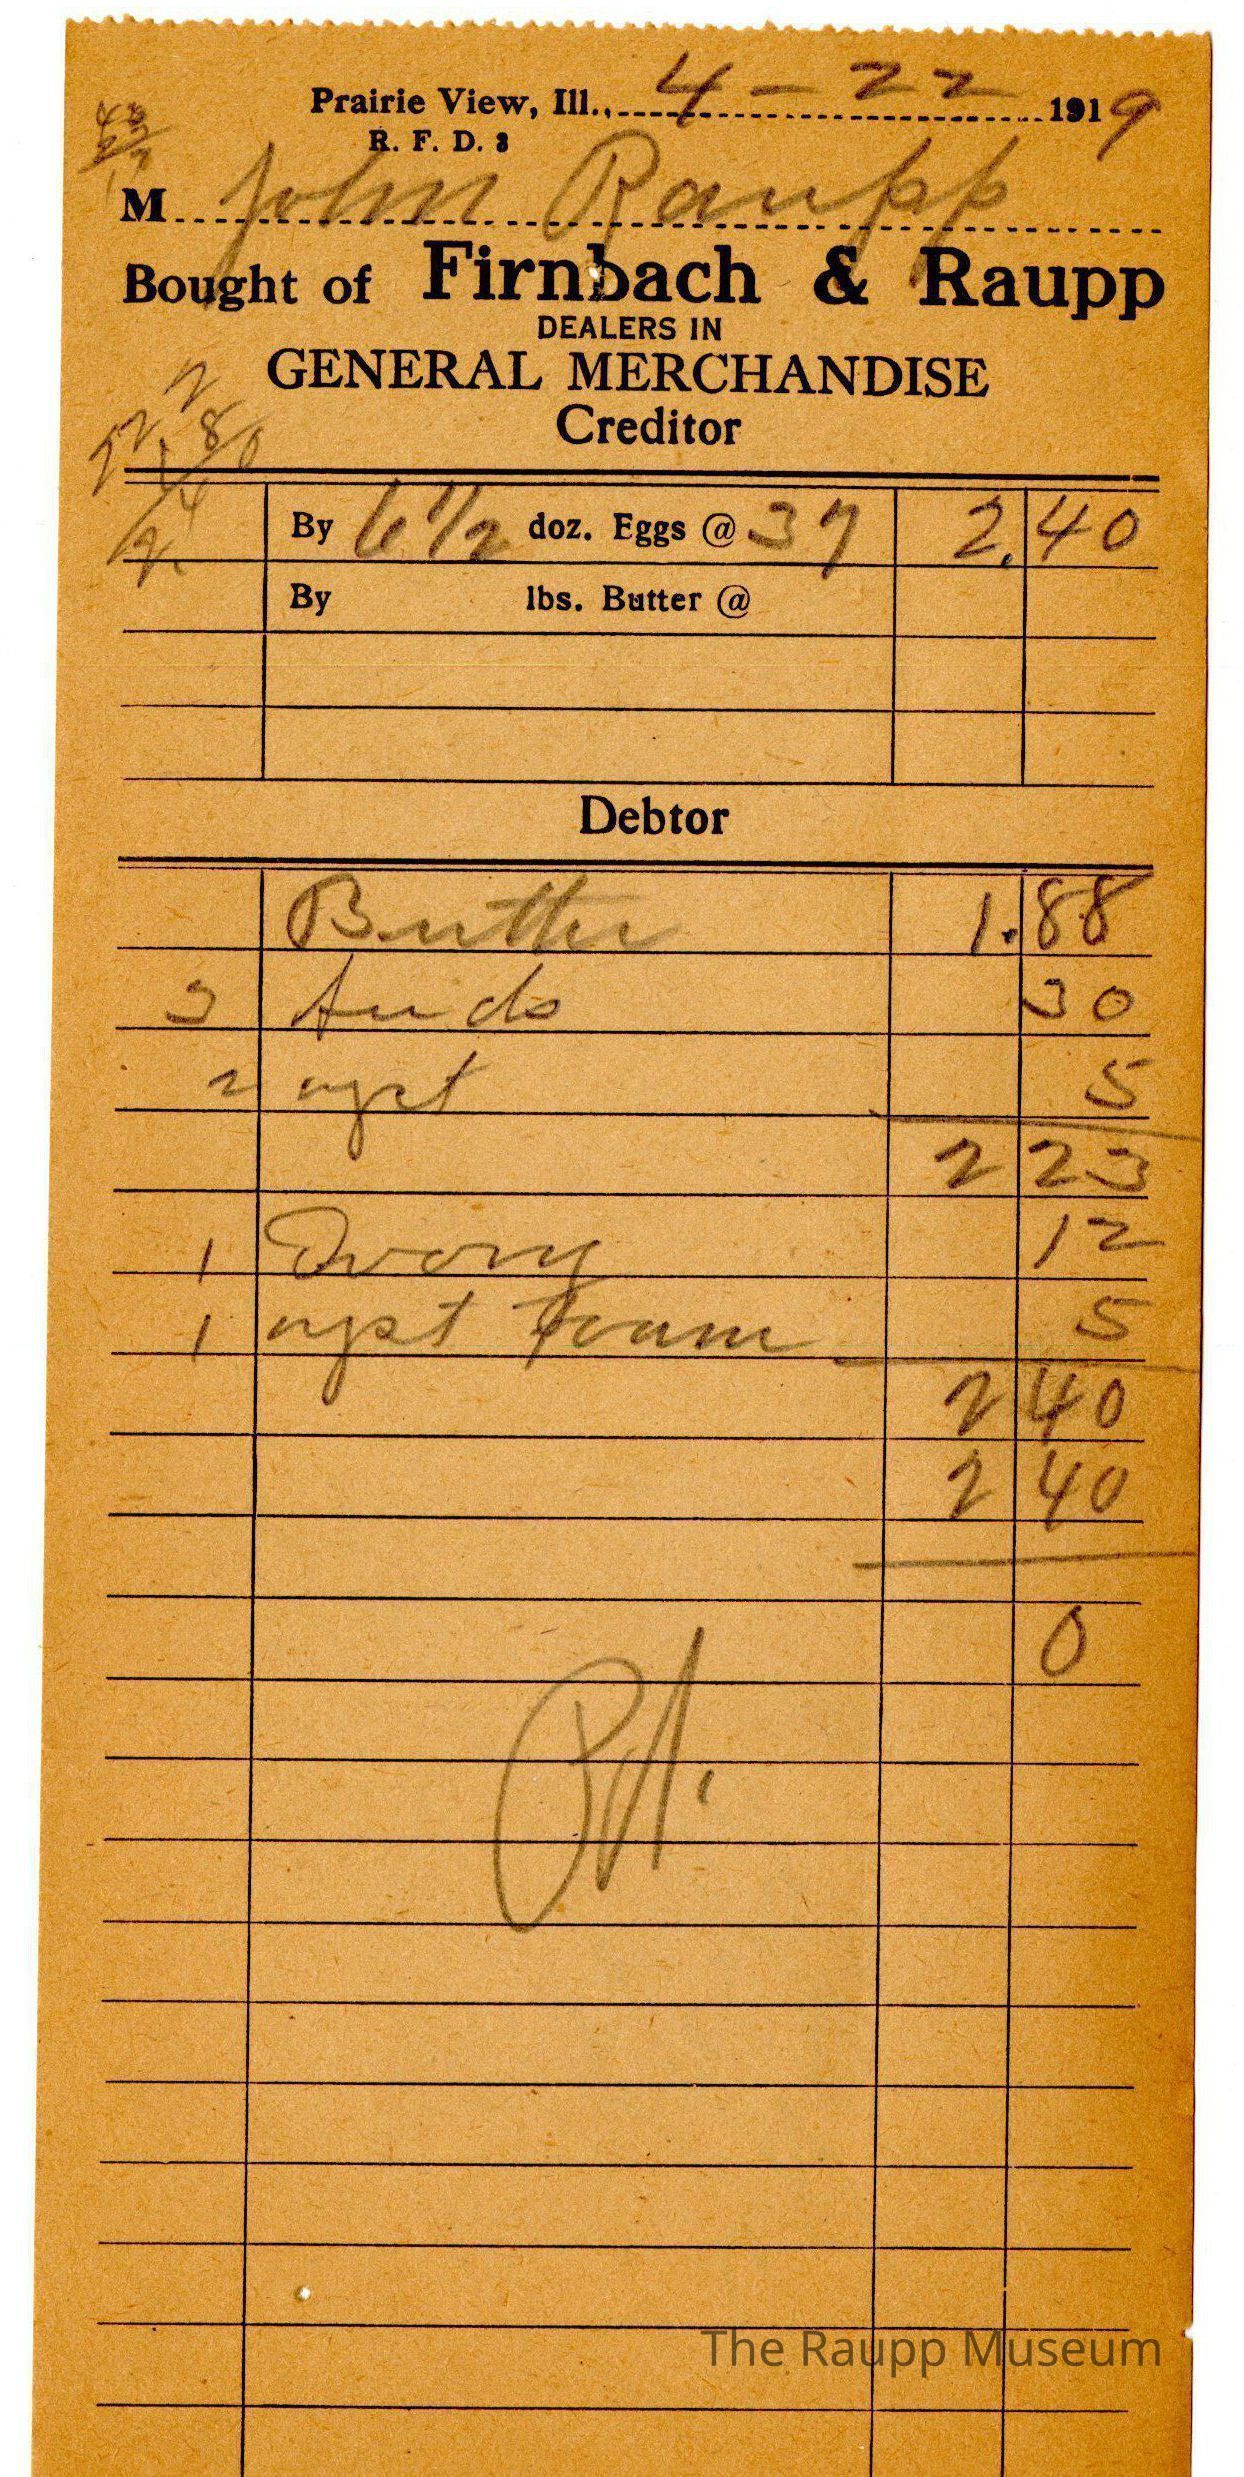 Prairie View, Ill., 4 - 22 1919
R. F. D. 3
M John Raupp
Bought of Firnbach & Raupp
DEALERS IN
GENERAL MERCHANDISE
Creditor
By 6 1/2 doz. Eggs @ 37 2.40
By lbs. Butter @
Debtor
Butter 1.88
3 30
2 yst 5
2 23
1 Ivory 12
1 yst Foam 5
2 40
2 40
0
Pd.
The Raupp Museum